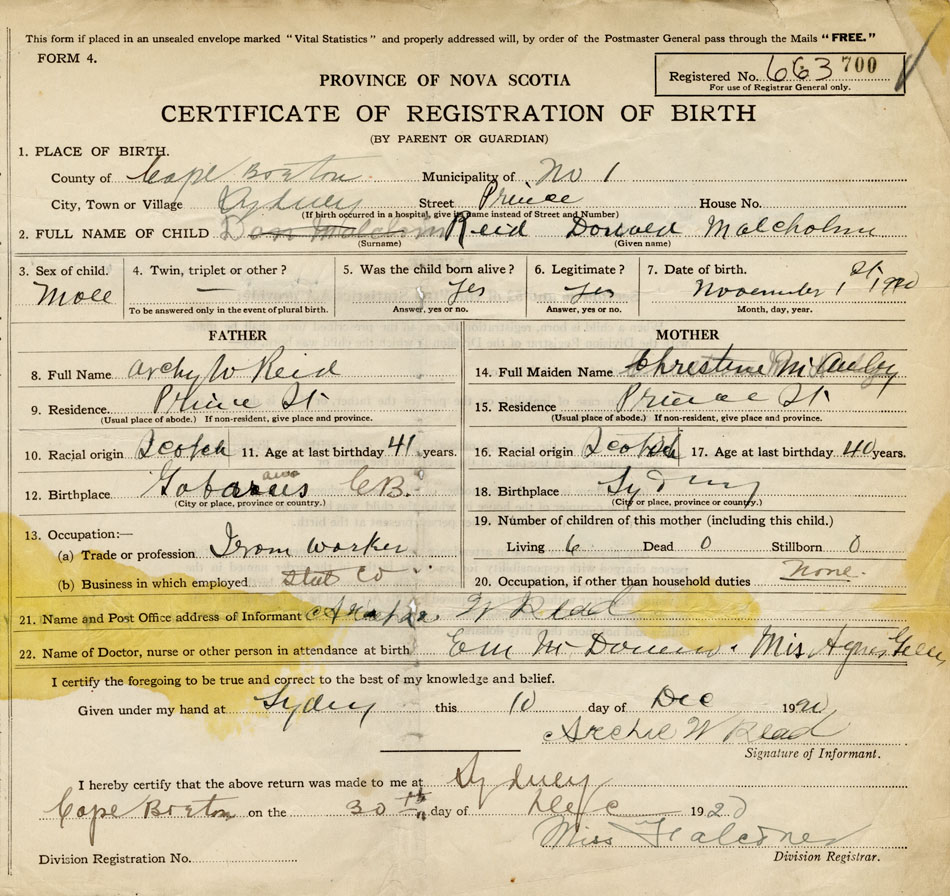 This form if placed in an unsealed envelope marked "Vital Statistics" and properly addressed will, by order of the Postmaster General pass through the Mails "FREE."
FORM 4.
Registered No. 663 700
For use of Registrar General only.
PROVINCE OF NOVA SCOTIA
CERTIFICATE OF REGISTRATION OF BIRTH
(BY PARENT OR GUARDIAN)
1. PLACE OF BIRTH.
County of Cape Borton Municipality of No 1
City, Town or Village Sydney Street Prince House No.
(If birth occurred in a hospital, give its name instead of Street and Number)
2. FULL NAME OF CHILD Reid Donald Malcholm
(Surname) (Given name)
3. Sex of child. 4. Twin, triplet or other? 5. Was the child born alive? 6. Legitimate? 7. Date of birth.
Male — Yes Yes November 1st 1920
To be answered only in the event of plural birth. Answer, yes or no. Answer, yes or no. Month, day, year.
FATHER
8. Full Name Archy W Reid
9. Residence. Prince St
(Usual place of abode.) If non-resident, give place and province.
10. Racial origin Scotch 11. Age at last birthday 41 years.
12. Birthplace Gabarus C.B.
(City or place, province or country.)
13. Occupation:—
(a) Trade or profession Irom worker
(b) Business in which employed Steel Co
MOTHER
14. Full Maiden Name Christine
15. Residence. Prince St
(Usual place of abode.) If non-resident, give place and province.
16. Racial origin Scotch 17. Age at last birthday 40 years.
18. Birthplace Sydney
(City or place, province or country.)
19. Number of children of this mother (including this child.)
Living 6 Dead 0 Stillborn 0
20. Occupation, if other than household duties None.
21. Name and Post Office address of Informant W Read
22. Name of Doctor, nurse or other person in attendance at birth Miss Agnes
I certify the foregoing to be true and correct to the best of my knowledge and belief.
Given under my hand at Sydney this 10 day of Dec 1920
Archie W Read
Signature of Informant.
I hereby certify that the above return was made to me at Sydney
Cape Borton on the 30th day of Dec 1920
Miss Falconer
Division Registrar.
Division Registration No.